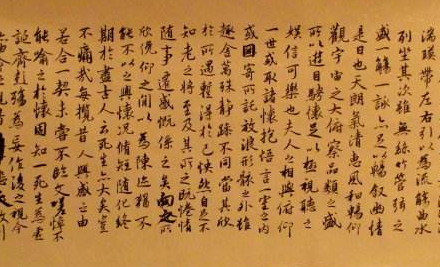 湍暎帶左右引以為流觴曲水
列坐其次雖無絲竹管弦之
盛一觴一詠亦足以暢叙幽情
是日也天朗氣清惠風和暢仰
觀宇宙之大俯察品類之盛
所以遊目騁懷足以極視聽之
娛信可樂也夫人之相與俯仰
一世或取諸懷抱悟言一室之內
或因寄所託放浪形骸之外雖
趣舍萬殊靜躁不同當其欣
於所遇蹔得於己怏然自足不
知老之將至及其所之既惓情
隨事遷感慨係之矣向之所
欣俛仰之閒以為陳迹猶不
能不以之興懷況脩短隨化終
期於盡古人云死生亦大矣豈
不痛哉每攬昔人興感之由
若合一契未嘗不臨文嗟悼不
能喻之於懷固知一死生為虛
誕齊彭殤為妄作後之視今